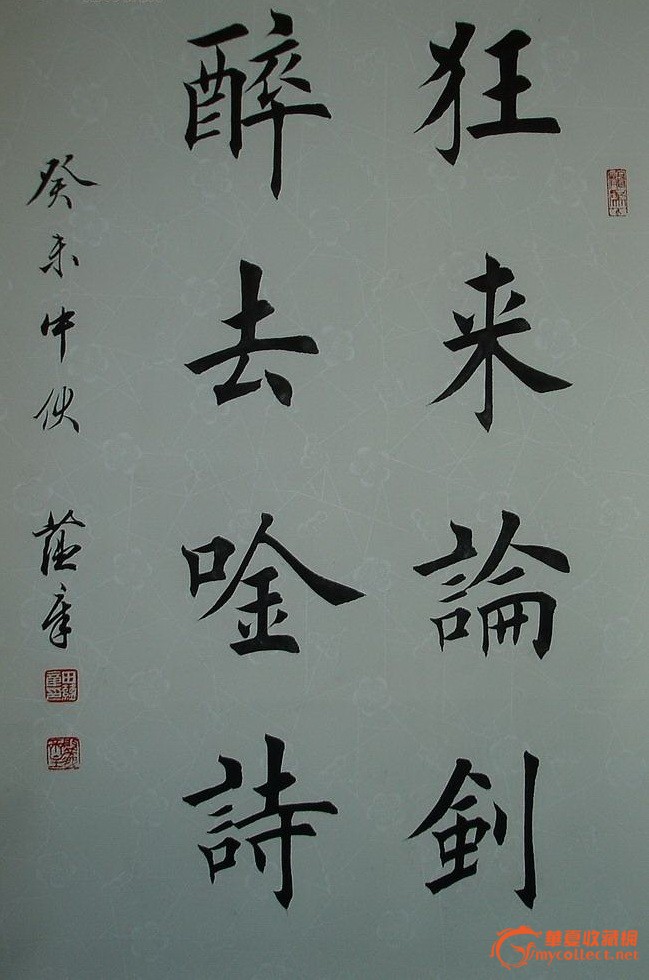 狂来論釗
醉去唫詩
癸未中伏 蕴章
華夏收藏網
mycollect.net